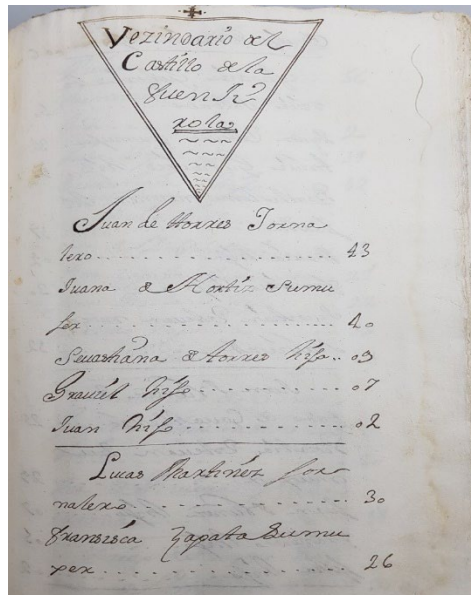 Vezindario del
Castillo de la
fuen Jir
xolas
Juan de ttorres Jorna
lero 43
Juana de Hortiz su mu
jer 40
Sevasttiana de ttorres hija 09
Graviel hijo 07
Juan hijo 02
Lucas Martinez Jor
nalero 30
fransisca Zapata su mu
xer 26